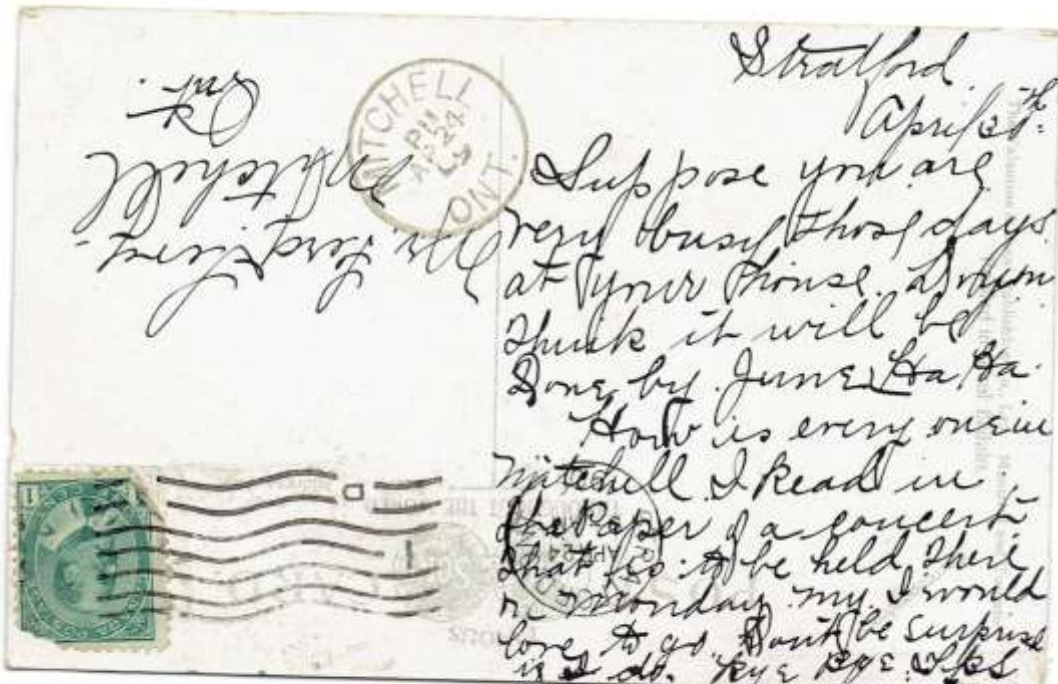 Stratford
April 20th
Suppose you are
very busy those days
at your house. Do you
think it will be
Done by June Ha Ha.
How is every one in
Mitchell I Read in
the Paper of a concert
that is to be held there
on Monday my I would
love to go Don't be surprise
if I do. Bye Bye
MITCHELL
PM
AP 24
ONT.
Mr
Mitchell
Ont.